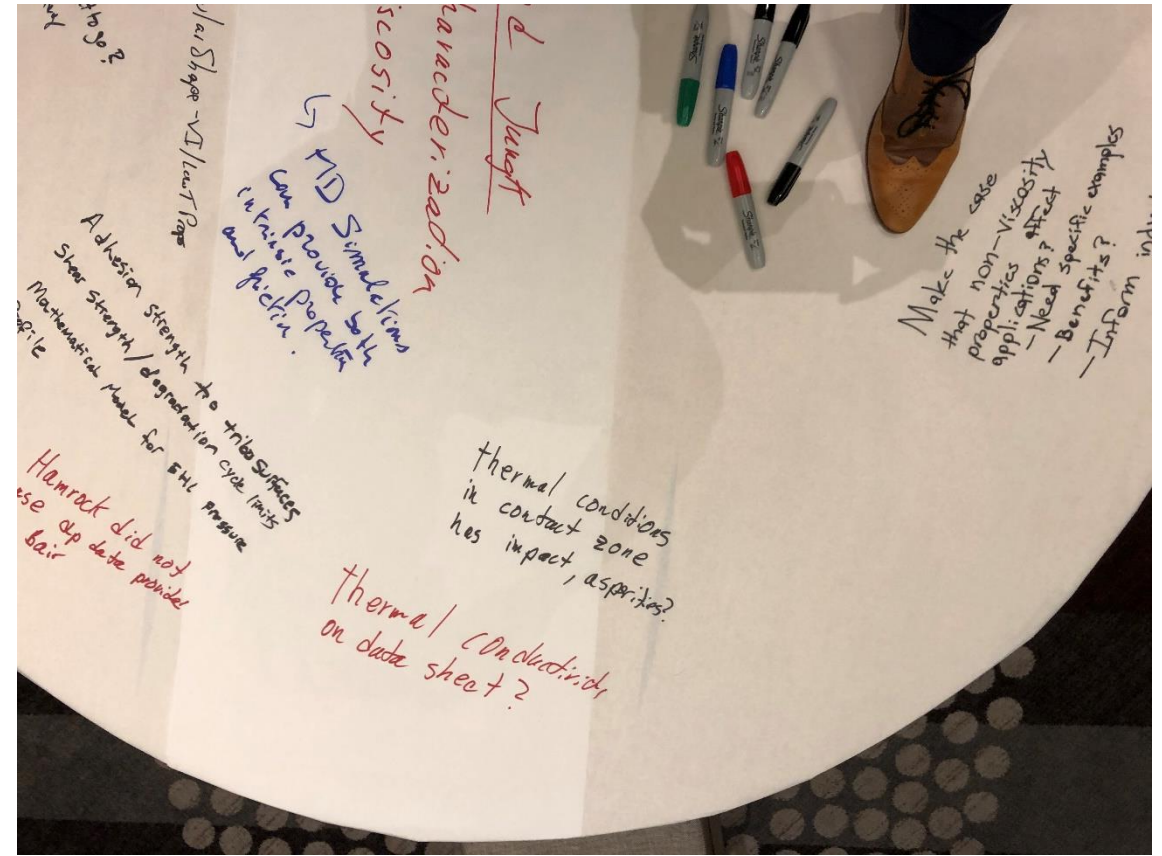 to go?
ular Shape - VI / Low T Props
d Jungk
haracterization
iscosity
↳ MD Simulations
can provide both
intrinsic properties
and friction.
Adhesion strength to tribosurfaces
Shear strength / degradation cycle limits
Mathematical Model for EHL pressure
ofile
Hamrock did not
use αp data provided
Bair
thermal conditions
in contact zone
has impact, asperities?
thermal conductivity
on data sheet?
Make the case
that non-viscosity
properties affect
applications?
- Need specific examples
- Benefits?
- Inform
Sharpie
Sharpie
Sharpie
Sharpie
Sharpie